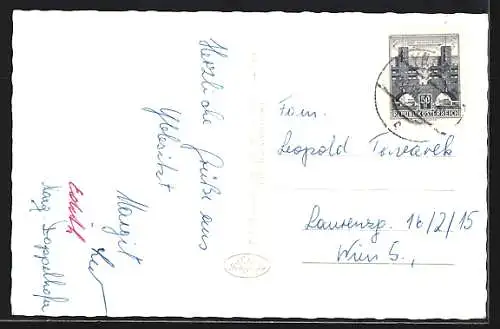 Herzliche Grüße aus
Ybbsitz
Margit
Edith
Marg. Doppelhofer
50
REPUBLIK ÖSTERREICH
Fam.
Leopold Tovarek
16/2/15
Wien 5.,